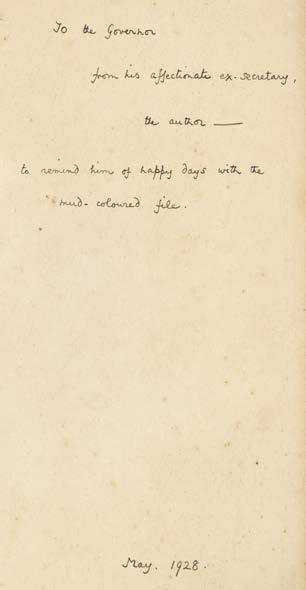 To the Governor
from his affectionate ex-secretary,
the author —
to remind him of happy days with the
mud-coloured file.
May. 1928.